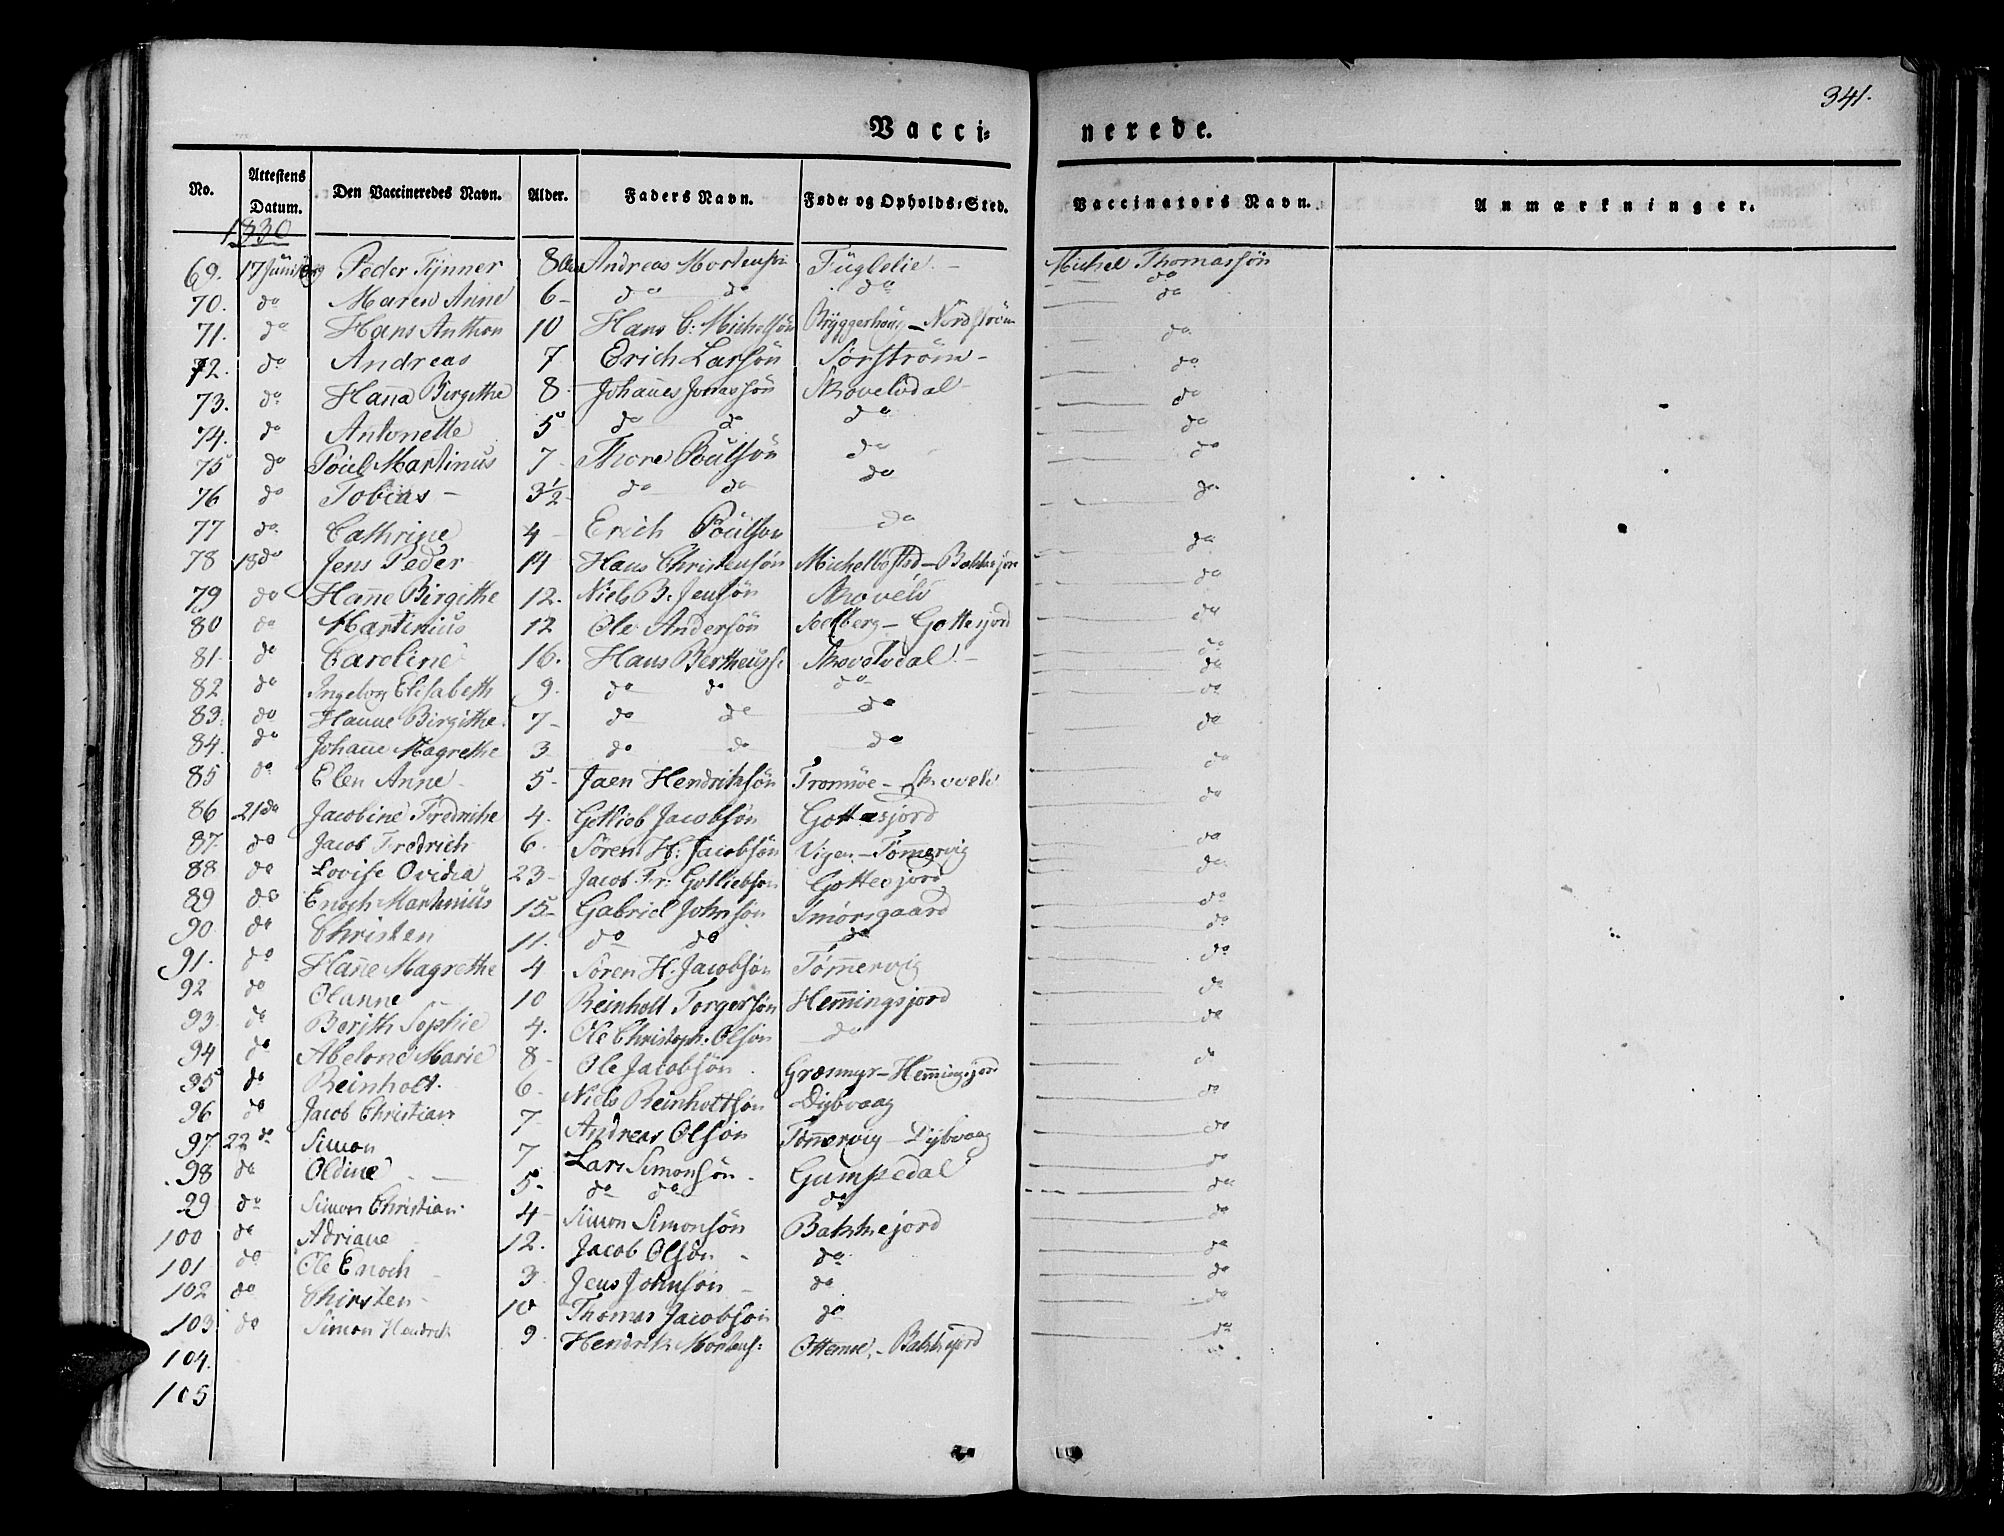 341.
Vacci= nerede.
No. Attestens Datum. Den Vaccineredes Navn. Alder. Faders Navn. Føde= og Opholds=Sted. Vaccinators Navn. Anmærkninger.
1830
69. 17 Peder Tÿnner 8 Andreas Mortensøn Füglelie. - Michel Thomassøn
70. do Maren Anne 6- do do do do
71. do Hans Anthon 10 Hans C: Michelsøn Brÿggerhoug - Nordstrøm do
72. do Andreas 7 Erich Larsøn Sørstrøm - do
73. do Hana Birgithe 8- Johannes Jonassøn Skovelvdal - do
74. do Antonette 5 do do do do
75 do Poül Martinus 7- Thore Poülsøn do do
76 do Tobias - 3½- do do do do
77 do Cathrine 4- Erich Poülsøn do do
78 18 do Jens Peder 14 Hans Christensøn Michelbostad - Bakkejord do
79 do Hanne Birgithe 12. Niels B. Jensøn Skovelv do
80 do Martinius 12 Ole Andersøn Sollberg - Gottesjord do
81. do Caroline 16. Hans Bertheuss: Skovelvdal. - do
82 do Ingeborg Elisabeth 9. do do do do
83. do Hanne Birgithe. 7- do do do do
84. do Johanne Magrethe 3 do do do do
85 do Elen Anne 5- Jaen Hendriksøn Tromsøe - Skovelv do
86 21 do Jacobine Fredrikke 4. Gotlieb Jacobsøn Gottesjord do
87. do Jacob Fredrich 6. Søren H: Jacobsøn Vigen - Tømervig do
88 do Lovise Ovidia 23- Jacob Fr: Gotliebsøn Gottesjord do
89 do Enoch Martinius 15- Gabriel Johnsøn Smørsgaard do
90 do Christen 11. do do do do
91. do Hanne Magrethe 4 Søren H. Jacobsøn Tømmervig do
92 do Olianne 10 Reinholt Torgersøn Hemmingsjord do
93. do Berith Sophie 4. Ole Christoph. Olsøn do do
94 do Abelone Marie 8- Ole Jacobsøn Grønnyr - Hemmingsjord do
95 do Reinholt. 6. Niels Reinholtsøn Dÿbvaag do
96 do Jacob Christian 7- Andreas Olsøn Tømmervig - Dÿbvaag do
97. 22 do Simon 7 Lars Simonsøn. Gumpedal do
98 do Oldine 5- do do do do
99 do Simon Christian 4- Simon Simonsøn Bakkejord do
100 do Adriane 12. Jacob Olsøn - do do
101 do Ole Enoch 3 Jens Johnsøn - do do
102 do Chirsten 10 Thomas Jacobsøn do do
103 do Simon Hendrik 9- Hendrik Mortens: - Bakkejord do
104.
105